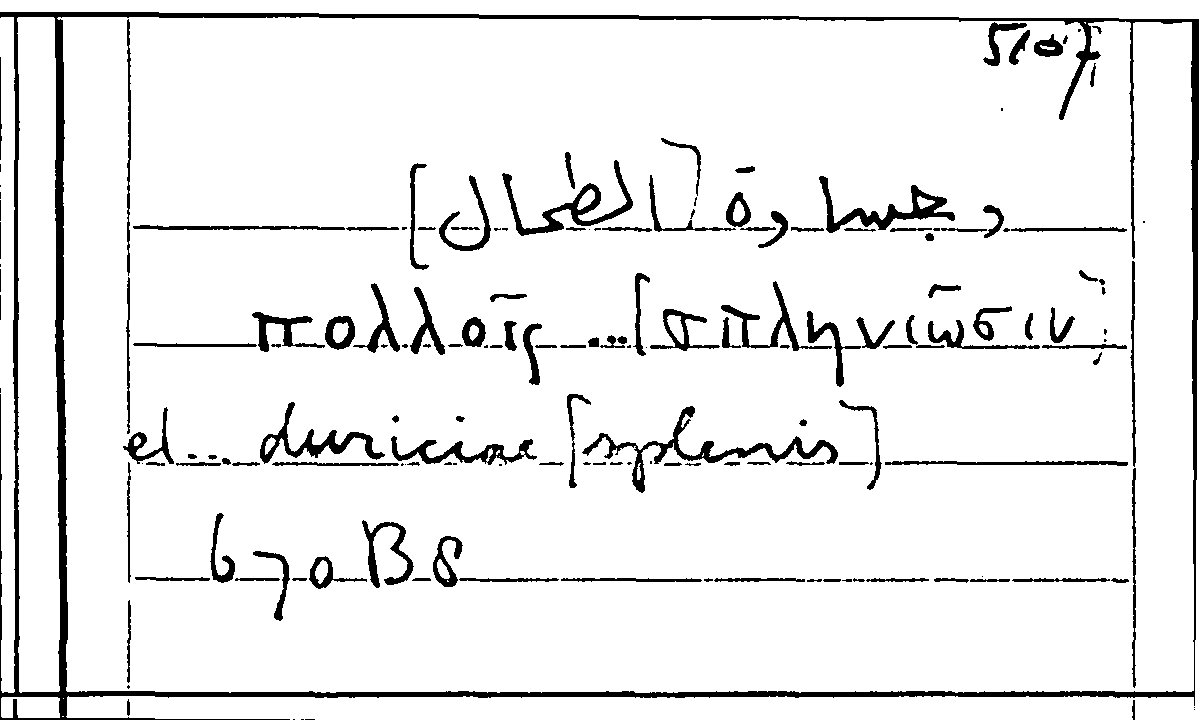 5107
وجساوة [الطحال]
πολλοῖς ...[σπληνιῶσιν]
et... duriciae [splenis]
670 B8